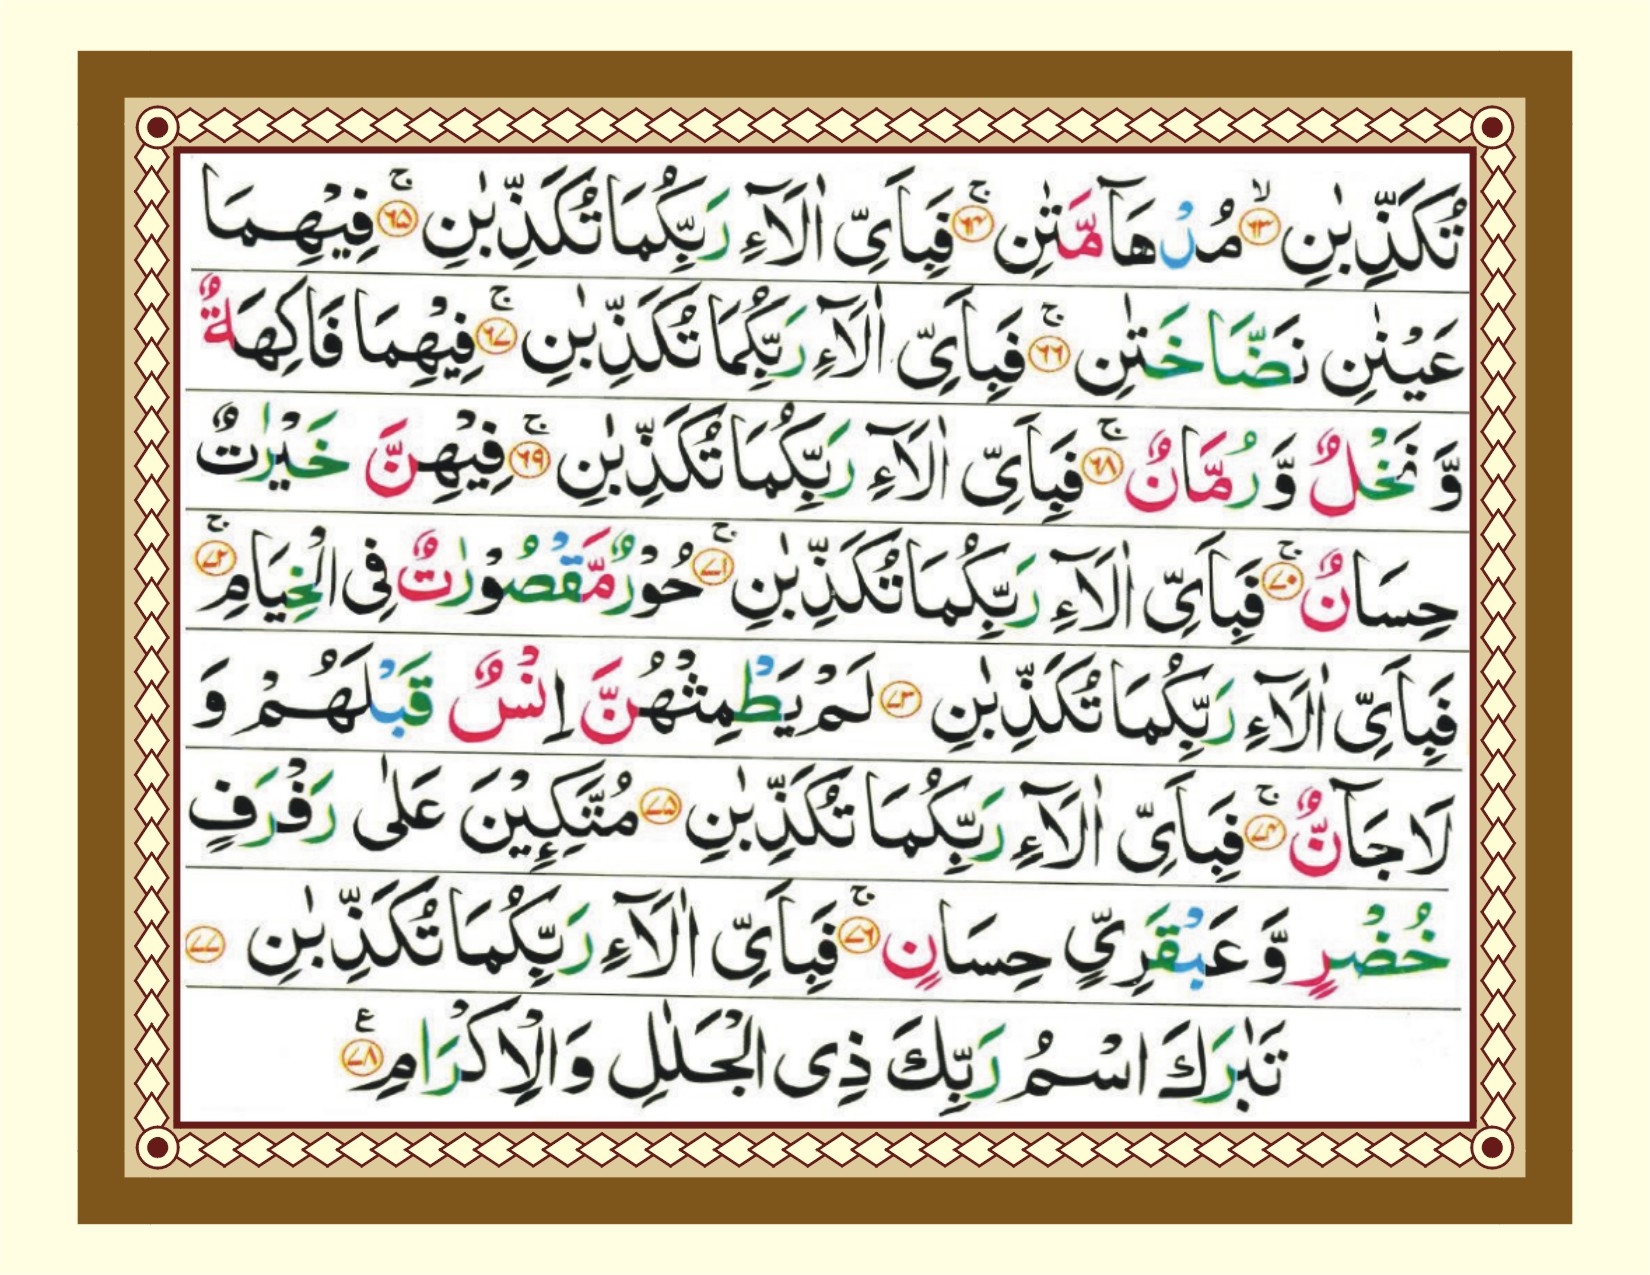 تُكَذِّبٰنِ ﴿۶۳﴾ۙ مُدْهَآمَّتٰنِ ﴿۶۴﴾ۚ فَبِاَىِّ اٰلَآءِ رَبِّكُمَا تُكَذِّبٰنِ ﴿۶۵﴾ۚ فِيْهِمَا
عَيْنٰنِ نَضَّاخَتٰنِ ﴿۶۶﴾ۚ فَبِاَىِّ اٰلَآءِ رَبِّكُمَا تُكَذِّبٰنِ ﴿۶۷﴾ۚ فِيْهِمَا فَاكِهَةٌ
وَّ نَخْلٌ وَّ رُمَّانٌ ﴿۶۸﴾ۚ فَبِاَىِّ اٰلَآءِ رَبِّكُمَا تُكَذِّبٰنِ ﴿۶۹﴾ۚ فِيْهِنَّ خَيْرٰتٌ
حِسَانٌ ﴿۷۰﴾ۚ فَبِاَىِّ اٰلَآءِ رَبِّكُمَا تُكَذِّبٰنِ ﴿۷۱﴾ۚ حُوْرٌ مَّقْصُوْرٰتٌ فِى الْخِيَامِ ﴿۷۲﴾ۚ
فَبِاَىِّ اٰلَآءِ رَبِّكُمَا تُكَذِّبٰنِ ﴿۷۳﴾ لَمْ يَطْمِثْهُنَّ اِنْسٌ قَبْلَهُمْ وَ
لَا جَآنٌّ ﴿۷۴﴾ۚ فَبِاَىِّ اٰلَآءِ رَبِّكُمَا تُكَذِّبٰنِ ﴿۷۵﴾ مُتَّكِـِٕيْنَ عَلٰى رَفْرَفٍ
خُضْرٍ وَّ عَبْقَرِىٍّ حِسَانٍ ﴿۷۶﴾ۚ فَبِاَىِّ اٰلَآءِ رَبِّكُمَا تُكَذِّبٰنِ ﴿۷۷﴾
تَبٰرَكَ اسْمُ رَبِّكَ ذِى الْجَلٰلِ وَالْاِكْرَامِ ﴿۷۸﴾ ع